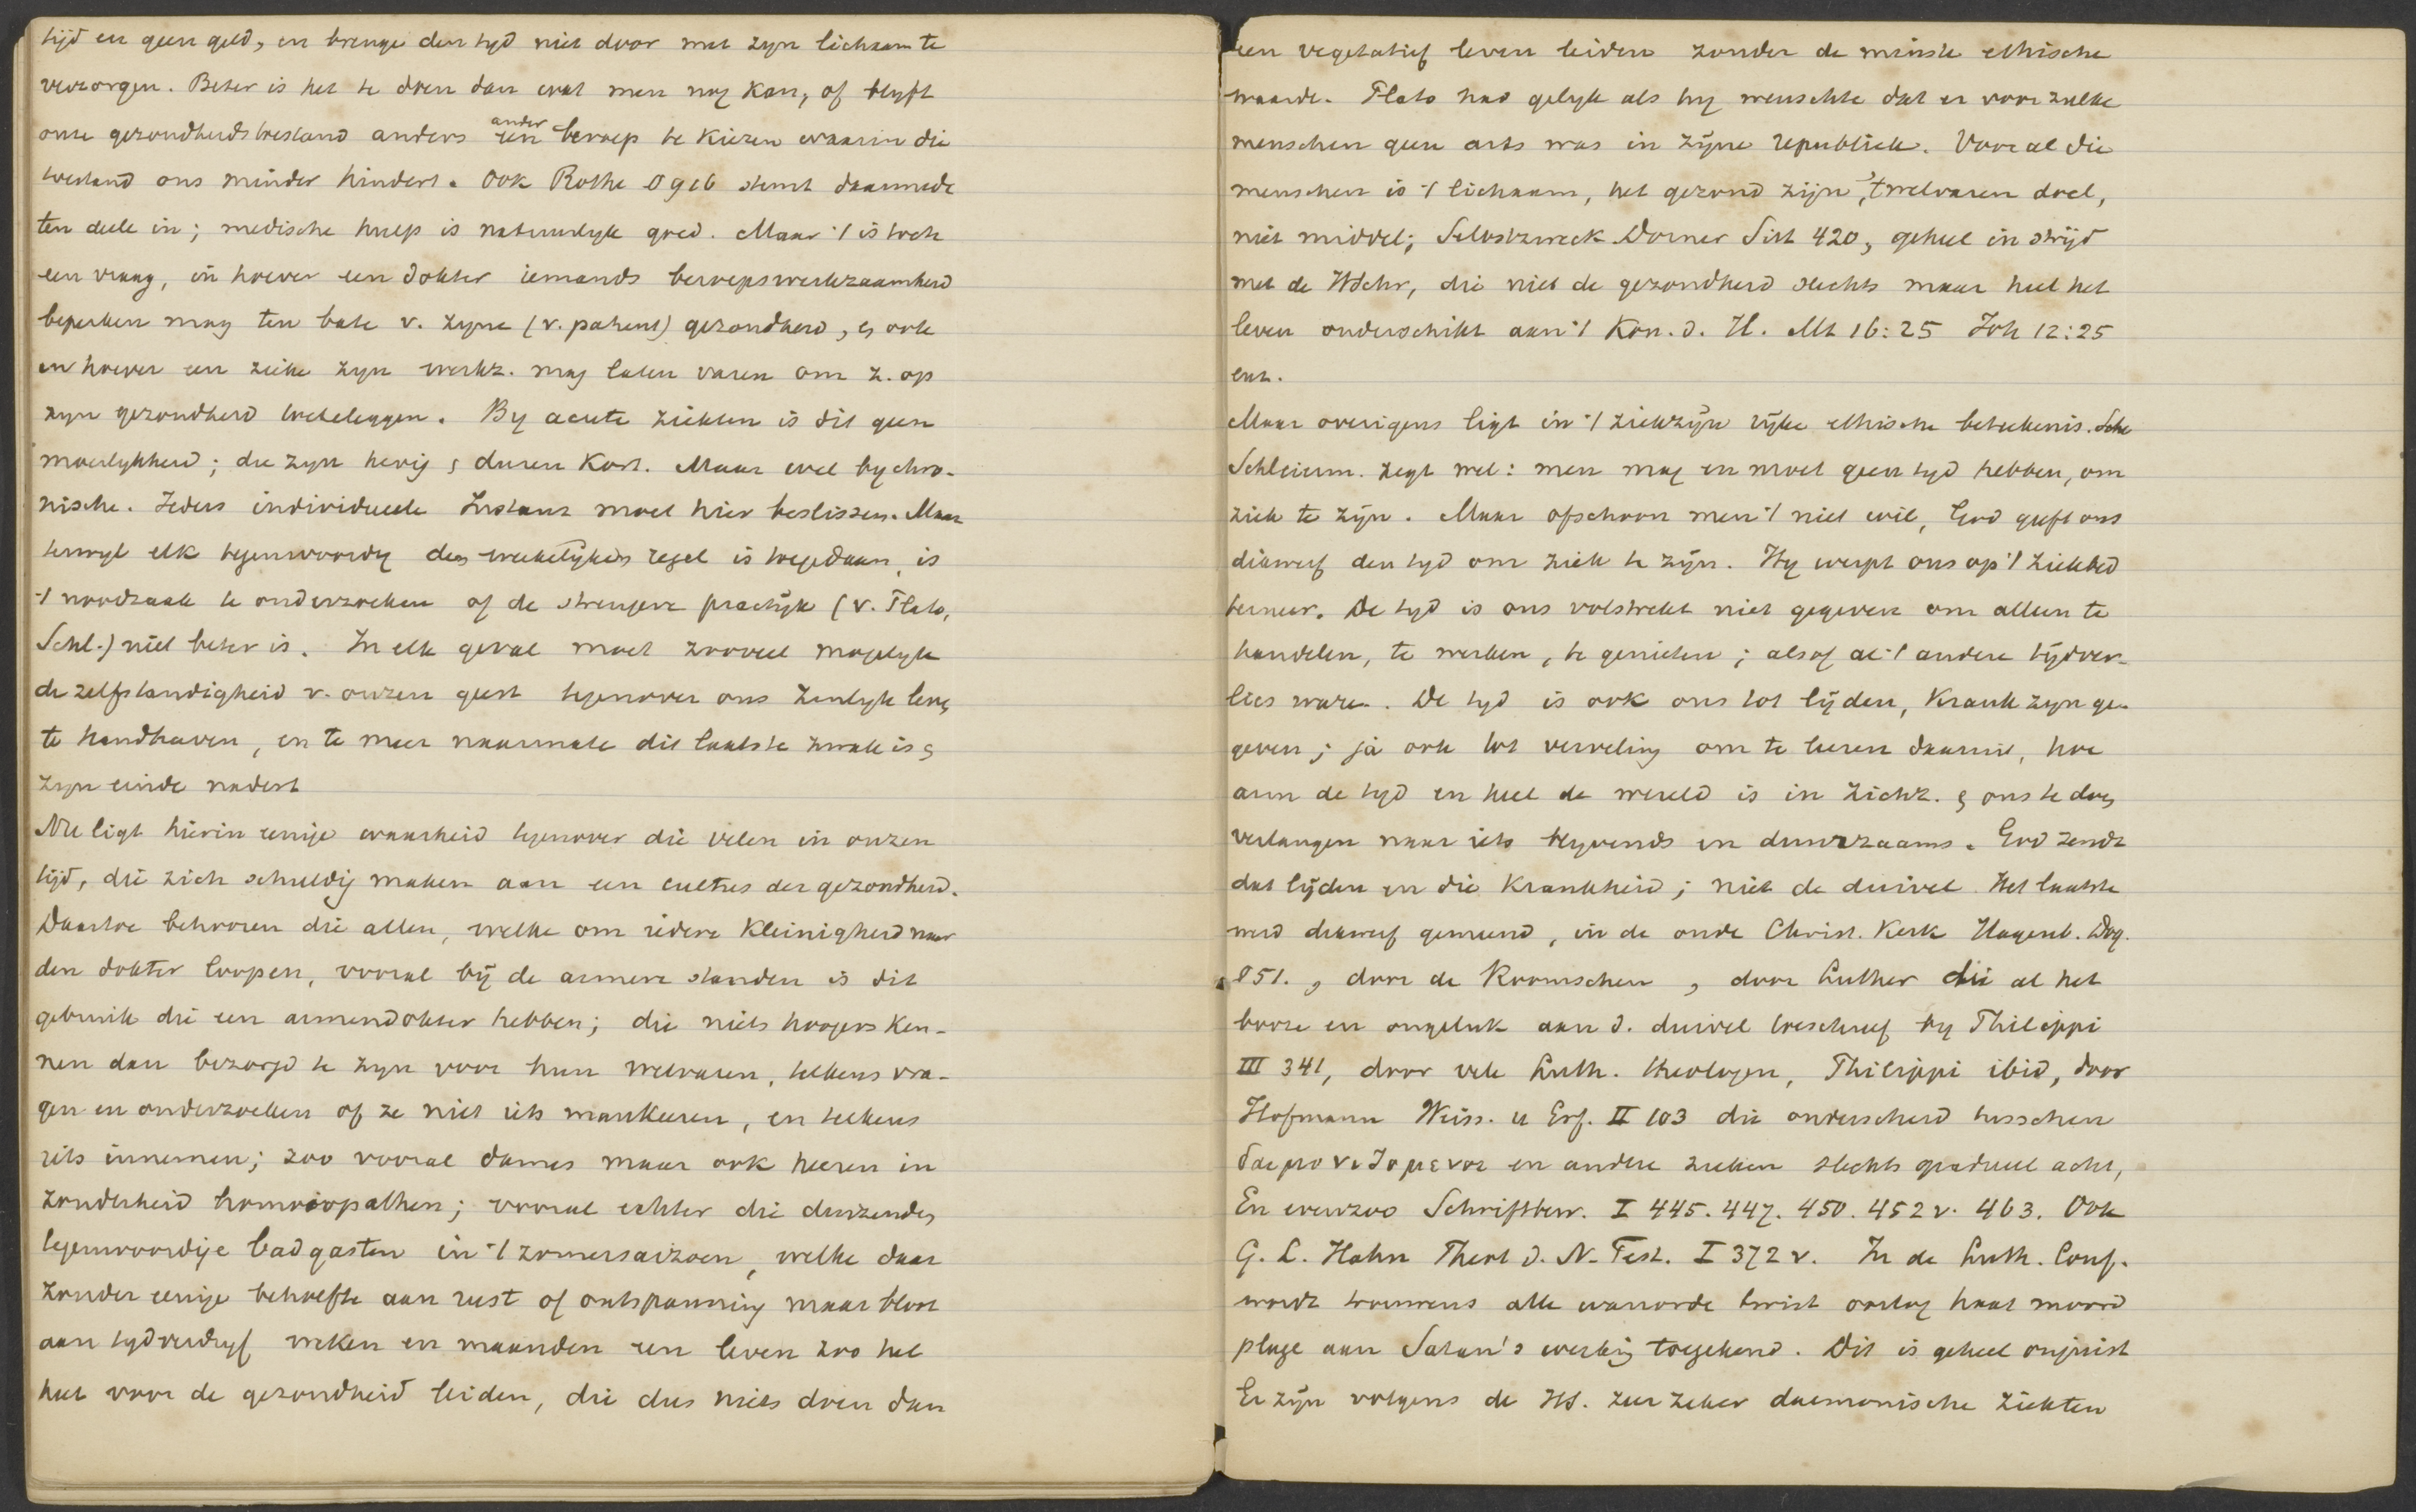 tijd en geen geld, en brenge den tyd niet door met zyn lichaam te
verzorgen. Beter is het te doen dan wat men nog kan, of blyft
onze gezondheidstoestand anders een ander beroep te kiezen waarin die
toestand ons minder hindert. Ook Rothe § 916 stemt daarmede
ten deele in; medische hulp is natuurlyk goed. Maar 't is toch
een vraag, in hoever een dokter iemands beroepswerkzaamheid
beperken mag ten bate v. zyne (v. patient) gezondheid, en ook
in hoever een zieke zyn werkz. mag laten varen om z. op
zyn gezondheid toeteleggen. By acute ziekten is dit geen
moeilykheid; die zyn hevig en duren kort. Maar wel by chro-
nische. Ieders individueele Instanz moet hier beslissen. Maar
terwyl elk tegenwoordig den weekelijken regel is toegedaan, is
't noodzaak te onderzoeken of de strengere practijk (v. Plato,
Schl.) niet beter is. In elk geval moet zooveel mogelyk
de zelfstandigheid v. onzen geest tegenover ons zinlyk leven
te handhaven, en te meer naarmate dit laatste zwak is en
zyn einde nadert
Nu ligt hierin eenige waarheid tegenover die velen in onzen
tijd, die zich schuldig maken aan een cultus der gezondheid.
Daartoe behooren die allen, welke om iedere kleinigheid naar
den dokter loopen, vooral bij de armere standen is dit
gebruik die een armendokter hebben; die niets hoogers ken-
nen dan bezorgd te zyn voor hun welvaren, telkens vra-
gen en onderzoeken of ze niet iets mankeeren, en telkens
iets innemen; zoo vooral dames maar ook heeren in
zonderheid homoiopathen; vooral echter die duizenden
tegenwoordige badgasten in 't zomersaizoen, welke daar
zonder eenige behoefte aan rust of ontspanning maar bloot
aan tydverdryf weken en maanden een leven zoo het
heet voor de gezondheid leiden, die dus niets doen dan
een vegetatief leven leiden zonder de minste ethische
waarde. Plato had gelyk als hy wenschte dat er voor zulke
menschen geen arts was in zijne republiek. Voor al die
menschen is 't lichaam, het gezond zijn, 't welvaren doel,
niet middel; Selbstzweck Dorner Sitt 420, geheel in strijd
met de HSchr, die niet de gezondheid slechts maar heel het
leven onderschikt aan 't Kon. d. H. Mt 16:25 Joh 12:25
enz.
Maar overigens ligt in 't ziekzijn rijke ethische beteekenis. Sch
Schleierm. zegt wel: men mag en moet geen tyd hebben, om
ziek te zijn. Maar ofschoon men 't niet wil, God geeft ons
dikwerf den tyd om ziek te zijn. Hy werpt ons op 't ziekbed
terneer. De tyd is ons volstrekt niet gegeven om alleen te
handelen, te werken, te genieten; alsof al 't andere tijdver-
lies ware. De tyd is ook ons tot lijden, krank zyn ge-
geven; ja ook tot verveling om te leeren daaruit, hoe
arm de tyd en heel de wereld is in zichz. en ons te doen
verlangen naar iets blyvends en duurzaams. God zendt
dat lijden en die krankheid; niet de duivel. Het laatste
werd dikwerf gemeend, in de oude Christ. Kerk Hagenb. Dog.
§51., door de Roomschen, door Luther die al het
booze en ongeluk aan d. duivel toeschreef by Philippi
III 341, door vele Luth. theologen, Philippi ibid, door
Hofmann Weiss. u Erf. II 103 die onderscheid tusschen
δαιμονιζομενοι en andere zieken slechts gradueel acht,
En evenzoo Schriftbew. I 445. 447. 450. 452 v. 463. Ook
G. L. Hahn Theol d. N. Test. I 372 v. In de Luth. Conf.
wordt trouwens alle wanorde twist oorlog haat moord
plage aan Satan's werking toegekend. Dit is geheel onjuist
Er zijn volgens de HS. zeer zeker daemonische ziekten